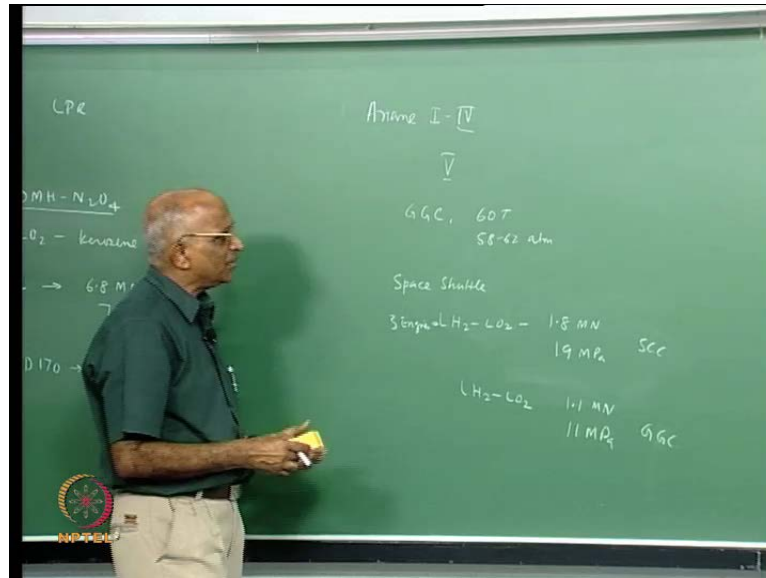 LPR
DMH-N₂O₄
O₂ - kerosene
→ 6.8 M
7
D 170 →
Ariane I-IV
V
GGC, 60T
58-62 atm
Space Shuttle
3 Engine LH₂-LO₂ - 1.8 MN
19 MPa SCC
LH₂-LO₂ 1.1 MN
11 MPa GGC
NPTEL